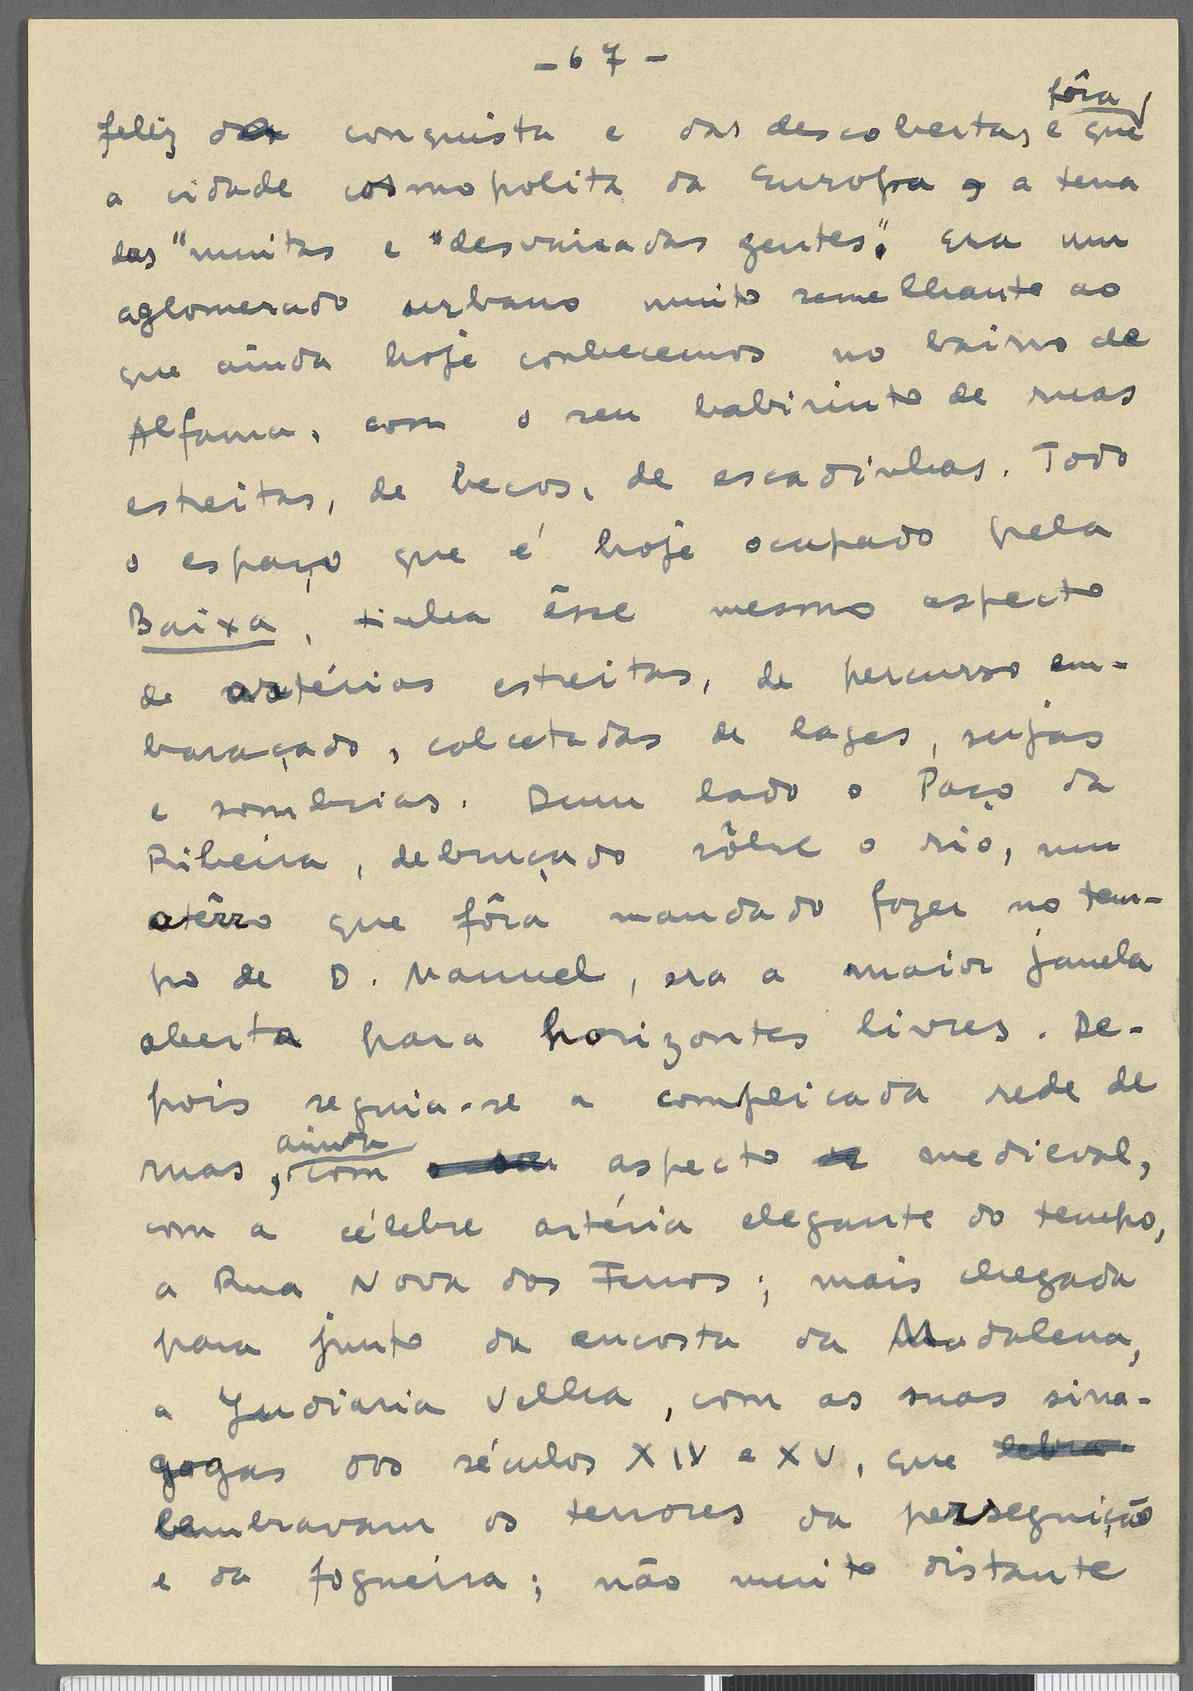 - 67 -
fôra
feliz da conquista e das descobertas e que
a cidade cosmopolita da Europa, a terra
das "muitas e "desvairadas gentes", era um
aglomerado urbano muito semelhante ao
que ainda hoje conhecemos no bairro de
Alfama, com o seu labirinto de ruas
estreitas, de becos, de escadinhas. Todo
o espaço que é hoje ocupado pela
Baixa, tinha êsse mesmo aspecto
de artérias estreitas, de percurso em-
baraçado, calcetadas de lages, sujas
e sombrias. Dum lado o Paço da
Ribeira, debruçado sôbre o rio, num
atêrro que fôra mandado fazer no tem-
po de D. Manuel, era a maior janela
aberta para horizontes livres. De-
pois seguia-se a complicada rede de
ainda
ruas, com o seu aspecto medieval,
com a célebre artéria elegante do tempo,
a Rua Nova dos Ferros; mais chegada
para junto da encosta da Madalena,
a Judiaria Velha, com as suas sina-
gogas dos séculos XIV e XV, que lebra-
lembravam os terrores da perseguição
e da fogueira; não muito distante